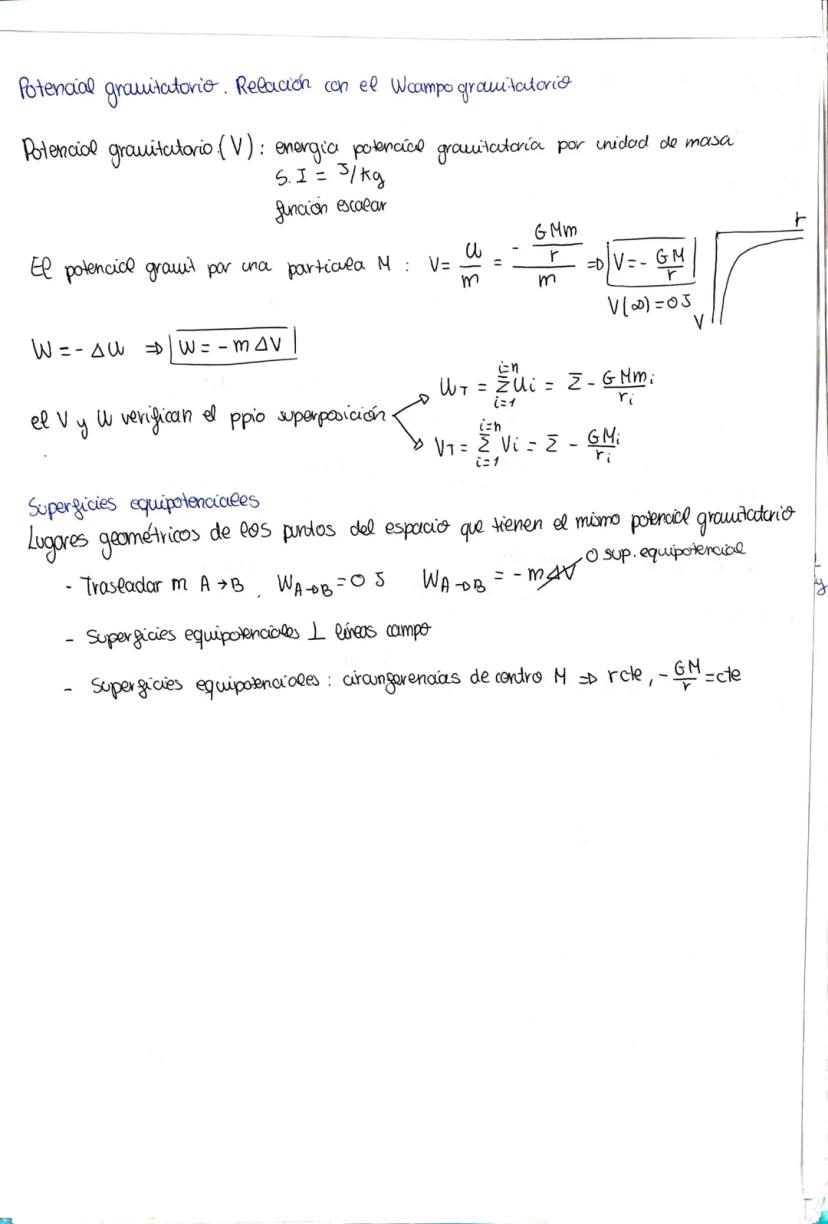 Potencial gravitatorio. Relación con el Wcampo gravitatorio
Potencial gravitatorio (V): energía potencial gravitatoria por unidad de masa
S.I = J/kg
función escalar
El potencial gravit por una partícula M : V = U/m = (- GMm/r)/m ⇒ V = - GM/r
V(∞)=0J
r
V
W = -ΔU ⇒ W = -mΔV
el V y U verifican el ppio superposición
U_T = Σ_{i=1}^{i=n} Ui = Σ - GMm_i/r_i
V_T = Σ_{i=1}^{i=n} Vi = Σ - GM_i/r_i
Superficies equipotenciales
Lugares geométricos de los puntos del espacio que tienen el mismo potencial gravitatorio
- Trasladar m A→B, W_{A→B} = 0 J W_{A→B} = -mΔV 0 sup. equipotencial
- Superficies equipotenciales ⊥ líneas campo
- Superficies equipotenciales: circunferencias de centro M ⇒ r cte, - GM/r = cte
y